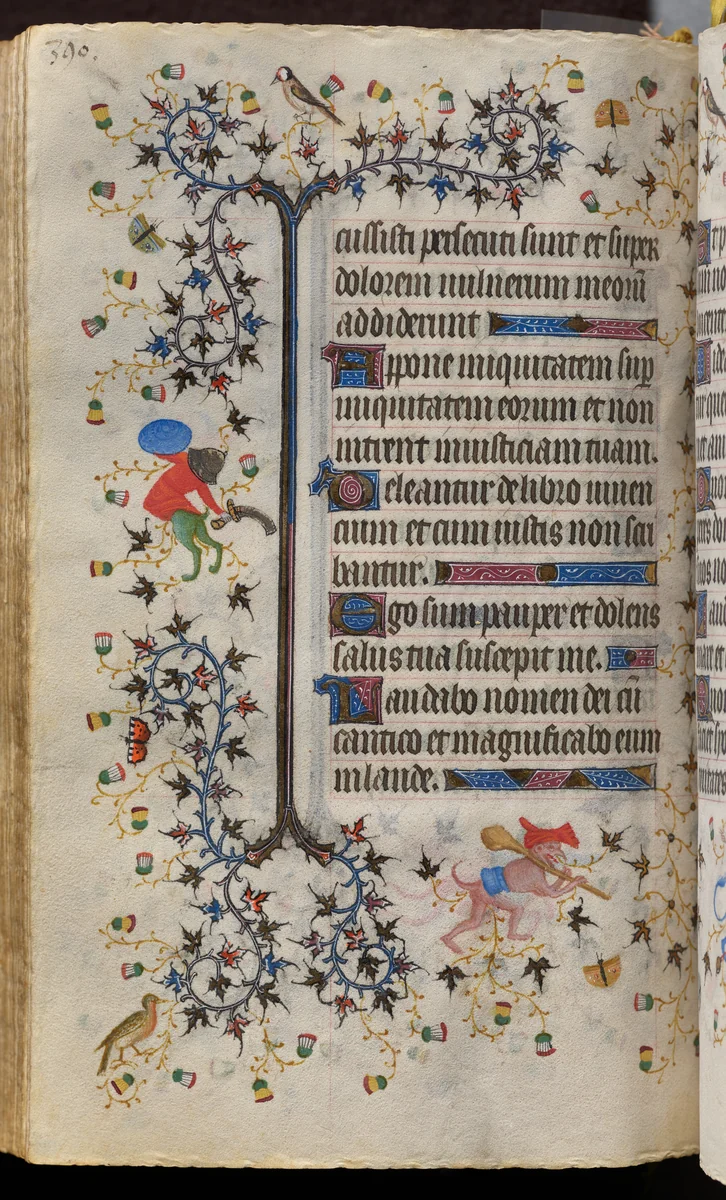 390.
cussisti persecuti sunt et super
dolorem uulnerum meorū
addiderunt
Appone iniquitatem sup
iniquitatem eorum et non
intrent in iusticiam tuam.
Deleantur de libro uiuen
cium et cum iustis non scri
bantur.
Ego sum pauper et dolens
salus tua suscepit me.
Laudabo nomen dei cū
cantico et magnificabo eum
in laude.